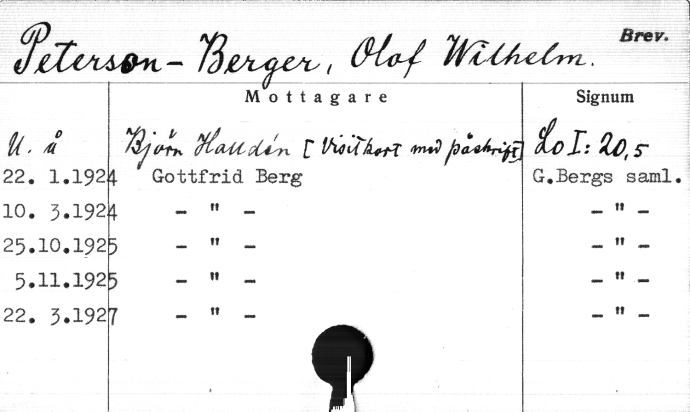 Brev.
Peterson-Berger, Olof Wilhelm.
Mottagare Signum
U. å Björn Halldén [Visitkort med påskrift] Lo I: 20,5
22. 1.1924 Gottfrid Berg G.Bergs saml.
10. 3.1924 – " – – " –
25.10.1925 – " – – " –
5.11.1925 – " – – " –
22. 3.1927 – " – – " –